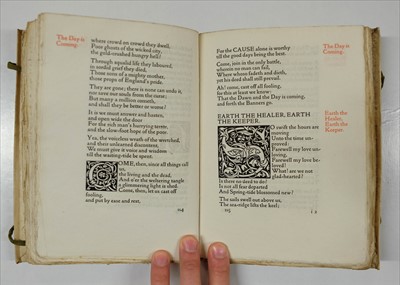 The Day is
Coming.
where crowd on crowd they dwell,
Poor ghosts of the wicked city,
the gold-crushed hungry hell?
Through squalid life they laboured,
in sordid grief they died,
Those sons of a mighty mother,
those props of England's pride.
They are gone; there is none can undo it,
nor save our souls from the curse;
But many a million cometh,
and shall they be better or worse?
It is we must answer and hasten,
and open wide the door
For the rich man's hurrying terror,
and the slow-foot hope of the poor.
Yea, the voiceless wrath of the wretched,
and their unlearned discontent,
We must give it voice and wisdom
till the waiting-tide be spent.
COME, then, since all things call
us,
the living and the dead,
And o'er the weltering tangle
a glimmering light is shed.
Come, then, let us cast off
fooling,
and put by ease and rest,
114
For the CAUSE alone is worthy
till the good days bring the best.
Come, join in the only battle,
wherein no man can fail,
Where whoso fadeth and dieth,
yet his deed shall still prevail.
Ah! come, cast off all fooling,
for this at least we know:
That the Dawn and the Day is coming,
and forth the Banners go.
The Day is
Coming.
EARTH THE HEALER, EARTH
THE KEEPER.
SO swift the hours are
moving
Unto the time un-
proved:
Farewell my love un-
loving,
Farewell my love be-
loved!
What! are we not
glad-hearted?
Is there no deed to do?
Is not all fear departed
And Spring-tide blossomed new?
The sails swell out above us,
The sea-ridge lifts the keel;
Earth the
Healer,
Earth the
Keeper.
115